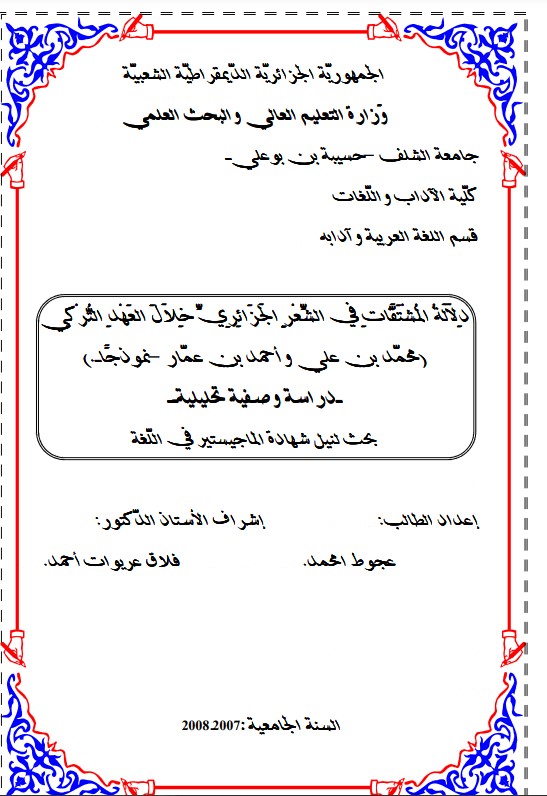 الجمهوريّة الجزائريّة الدّيمقراطيّة الشعبيّة
وزارة التعليم العالي والبحث العلمي
جامعة الشلف –حسيبة بن بوعلي-
كلّية الآداب واللّغات
قسم اللغة العربية وآدابه
دِلاَلَةُ المُشْتَقَّاتِ فِي الشِّعْرِ الجَزَائِرِيِّ خِلاَلَ العَهْدِ التُّرْكِي
(محمّد بن علي وأحمد بن عمّار -نموذجًا-)
-دراسة وصفية تحليلية-
بحث لنيل شهادة الماجيستير في اللّغة
إعداد الطالب: إشراف الأستاذ الدّكتور:
عجوط امحمد. فلاق عريوات أحمد.
السنة الجامعية:2008.2007